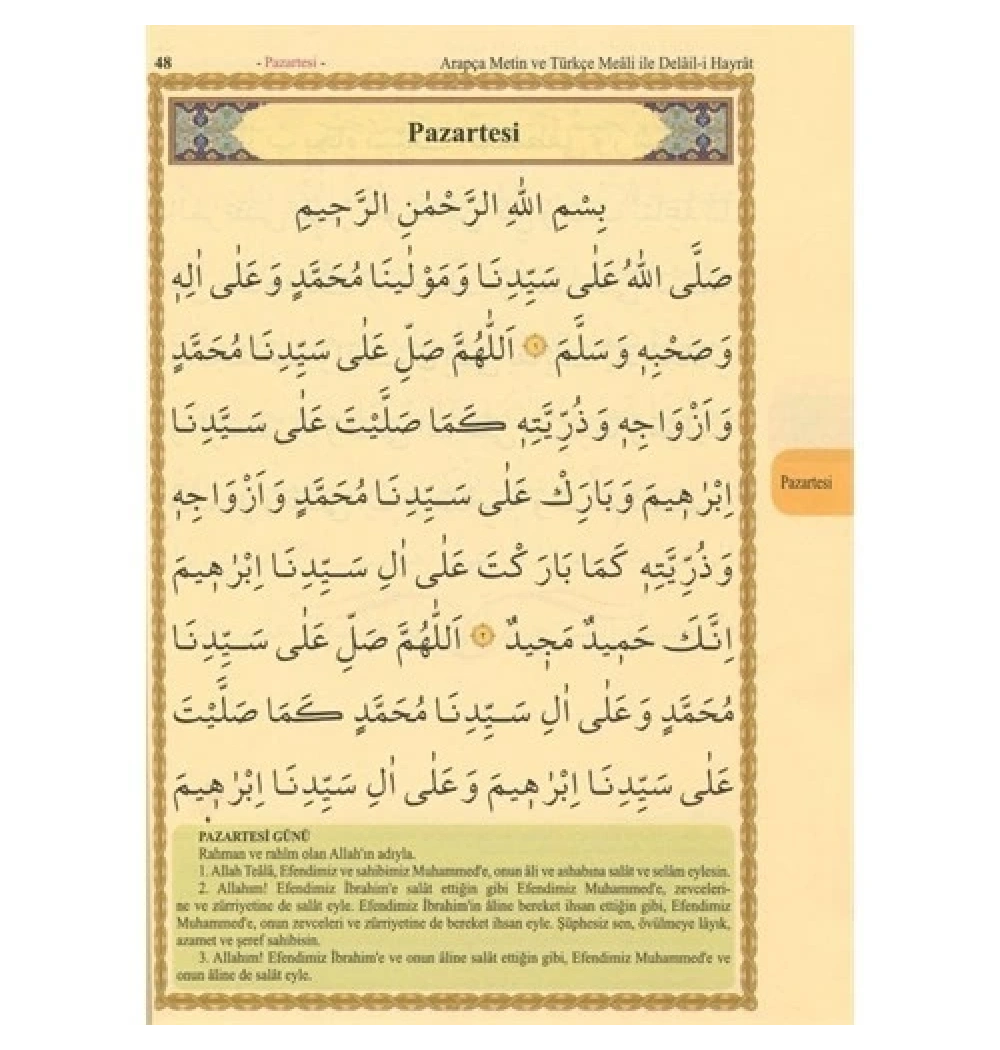 48 - Pazartesi - Arapça Metin ve Türkçe Meâli ile Delâil-i Hayrât
Pazartesi
بِسْمِ اللّٰهِ الرَّحْمٰنِ الرَّحٖيمِ
صَلَّى اللّٰهُ عَلٰى سَيِّدِنَا وَمَوْلٰينَا مُحَمَّدٍ وَعَلٰى اٰلِهٖ
وَصَحْبِهٖ وَسَلَّمَ ١ اَللّٰهُمَّ صَلِّ عَلٰى سَيِّدِنَا مُحَمَّدٍ
وَاَزْوَاجِهٖ وَذُرِّيَّتِهٖ كَمَا صَلَّيْتَ عَلٰى سَيِّدِنَا
اِبْرٰهٖيمَ وَبَارِكْ عَلٰى سَيِّدِنَا مُحَمَّدٍ وَاَزْوَاجِهٖ
وَذُرِّيَّتِهٖ كَمَا بَارَكْتَ عَلٰى اٰلِ سَيِّدِنَا اِبْرٰهٖيمَ
اِنَّكَ حَمٖيدٌ مَجٖيدٌ ٢ اَللّٰهُمَّ صَلِّ عَلٰى سَيِّدِنَا
مُحَمَّدٍ وَعَلٰى اٰلِ سَيِّدِنَا مُحَمَّدٍ كَمَا صَلَّيْتَ
عَلٰى سَيِّدِنَا اِبْرٰهٖيمَ وَعَلٰى اٰلِ سَيِّدِنَا اِبْرٰهٖيمَ
Pazartesi
PAZARTESİ GÜNÜ
Rahman ve rahîm olan Allah'ın adıyla.
1. Allah Teâlâ, Efendimiz ve sahibimiz Muhammed'e, onun âli ve ashabına salât ve selâm eylesin.
2. Allahım! Efendimiz İbrahim'e salât ettiğin gibi Efendimiz Muhammed'e, zevceleri-
ne ve zürriyetine de salât eyle. Efendimiz İbrahim'in âline bereket ihsan ettiğin gibi, Efendimiz
Muhammed'e, onun zevceleri ve zürriyetine de bereket ihsan eyle. Şüphesiz sen, övülmeye lâyık,
azamet ve şeref sahibisin.
3. Allahım! Efendimiz İbrahim'e ve onun âline salât ettiğin gibi, Efendimiz Muhammed'e ve
onun âline de salât eyle.